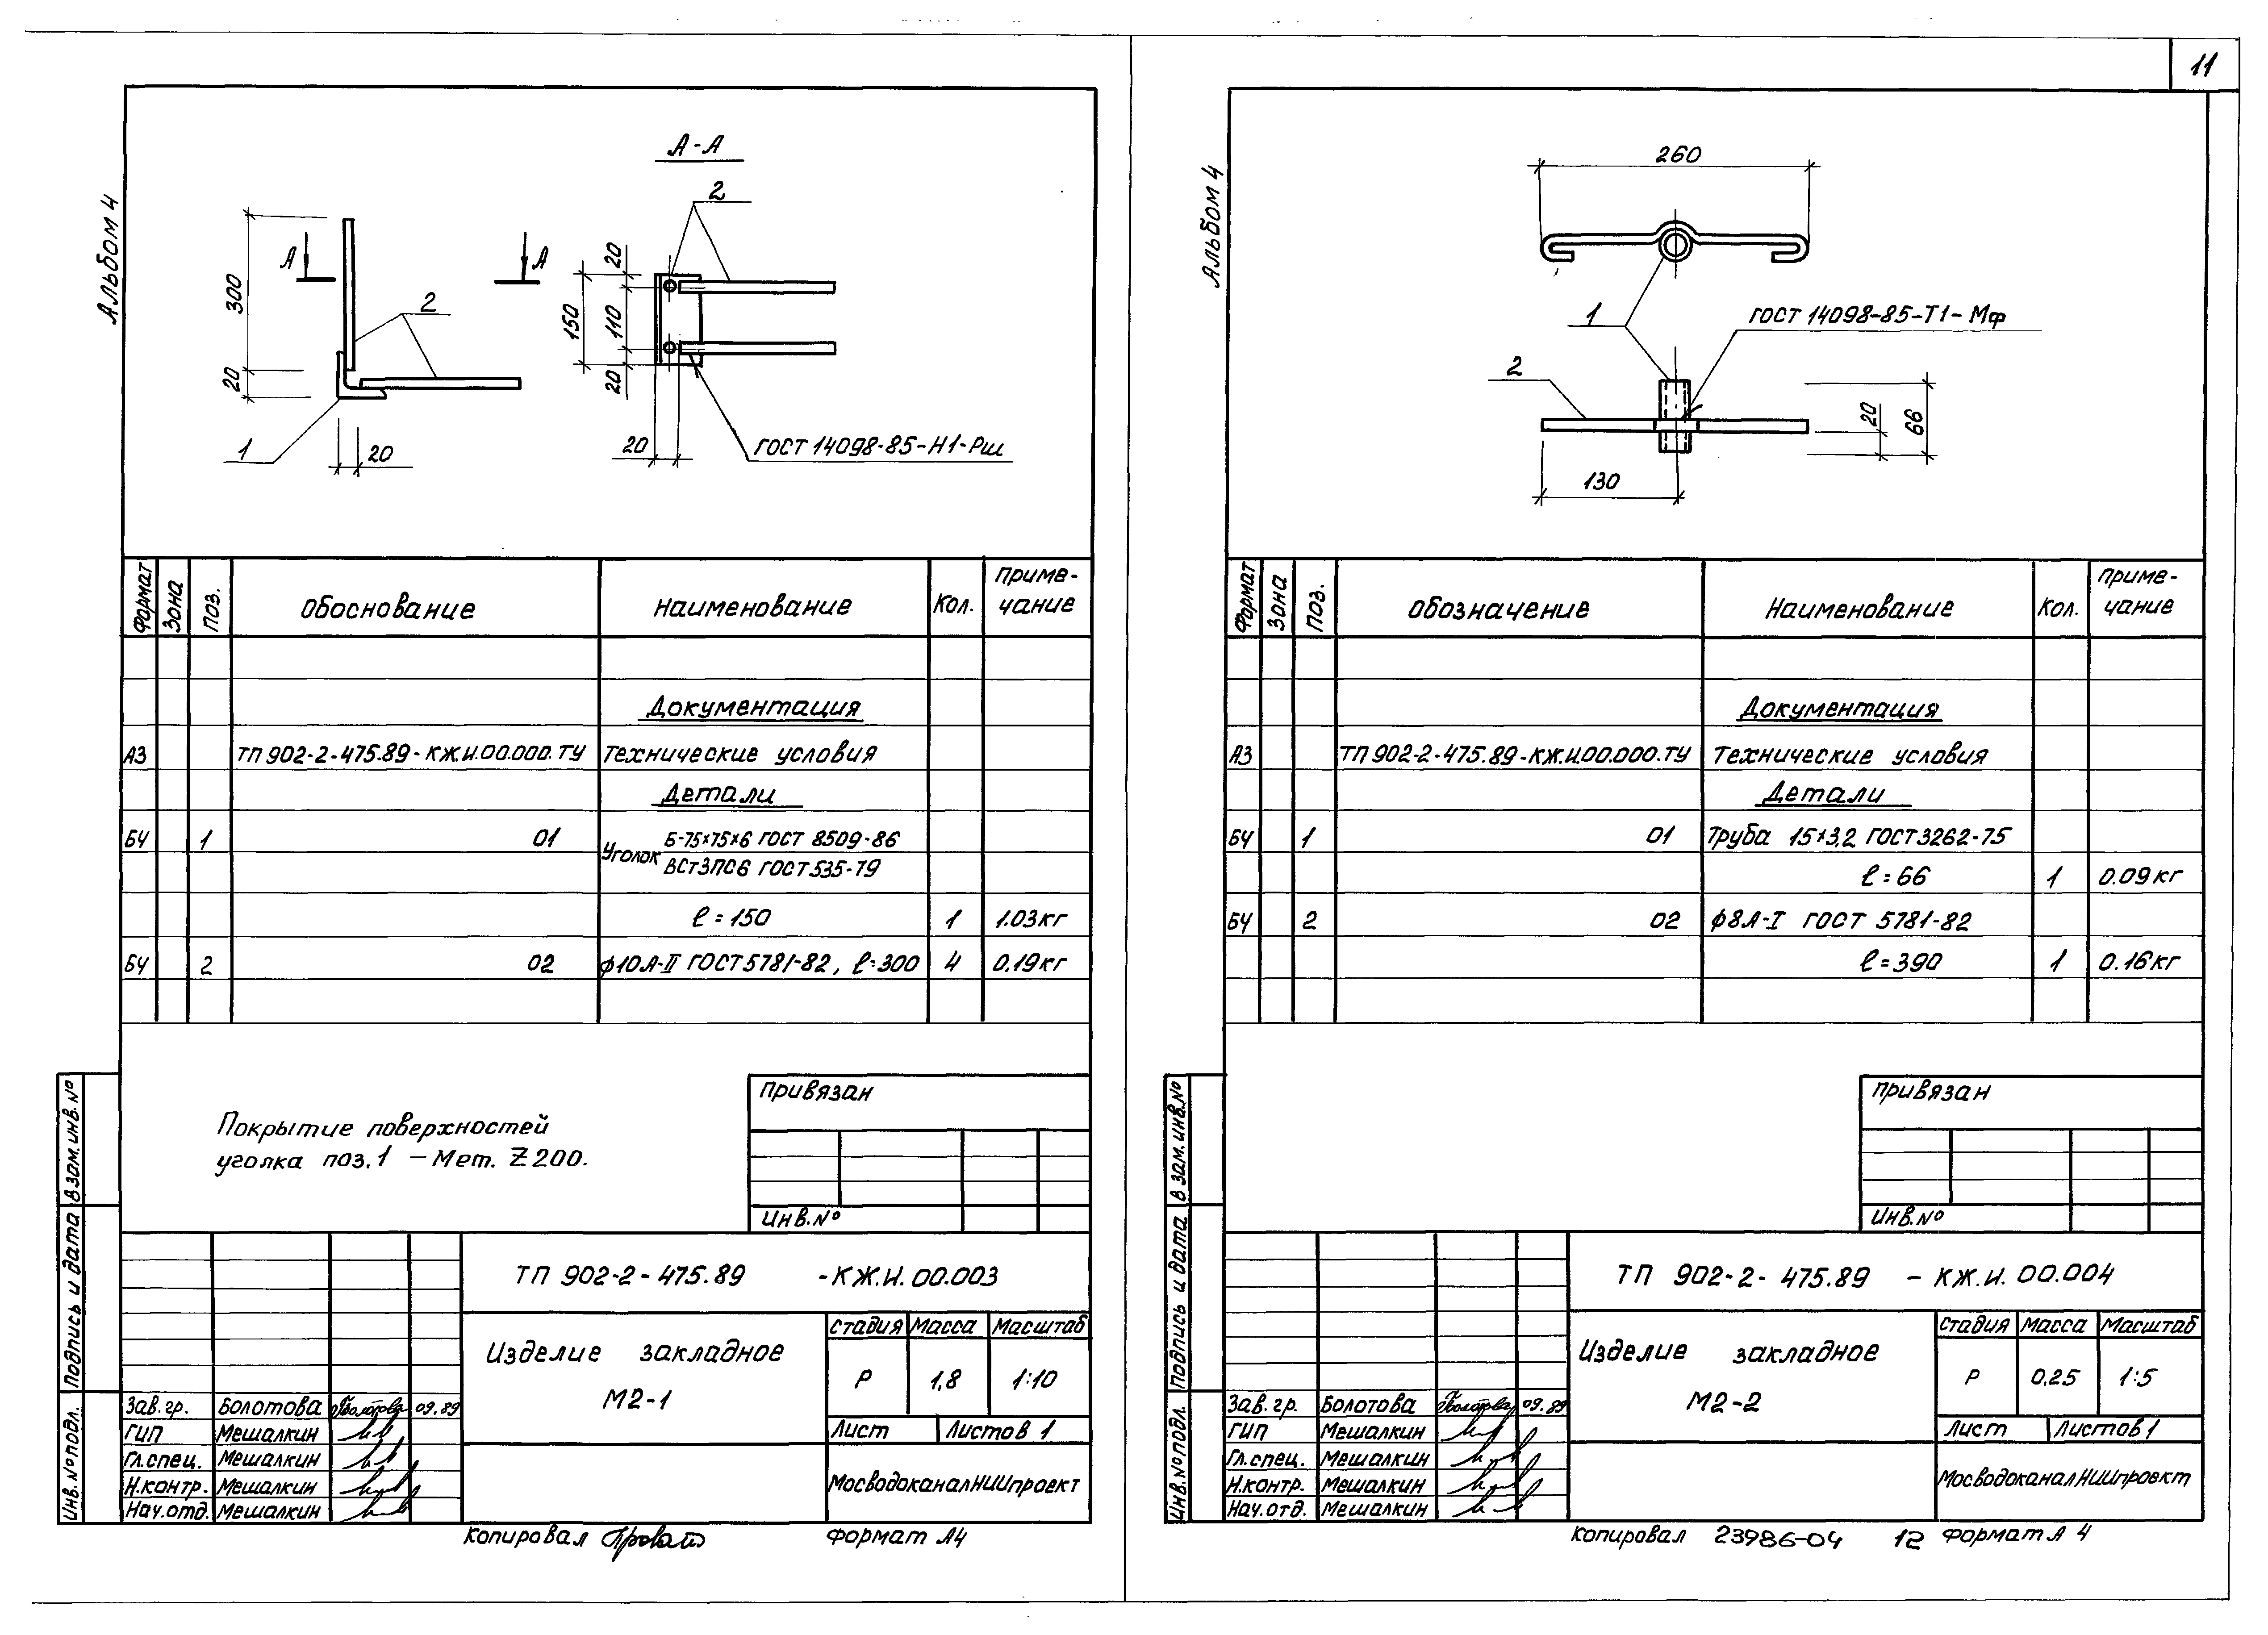 11
Альбом 4
А-А
2
А
А
300
20
2
1
20
20
150
110
20
20
ГОСТ 14098-85-Н1-Рш
Формат
Зона
Поз.
Обоснование
Наименование
Кол.
Приме-
чание
Документация
А3 ТП 902-2-475.89-КЖ.И.00.000.ТУ Технические условия
Детали
БЧ 1 01 Уголок Б-75×75×6 ГОСТ 8509-86
ВСт3пс6 ГОСТ 535-79
ℓ=150 1 1.03кг
БЧ 2 02 ф10А-II ГОСТ 5781-82, ℓ=300 4 0.19кг
Покрытие поверхностей
уголка поз.1 – Мет. Z 200.
Привязан
Инв.№
Взам.инв.№
Подпись и дата
Инв.№подл.
ТП 902-2-475.89 -КЖ.И.00.003
Изделие закладное
М2-1
Стадия Масса Масштаб
Р 1,8 1:10
Лист Листов 1
МосводоканалНИИпроект
Зав.гр. Болотова 09.89
ГИП Мешалкин
Гл.спец. Мешалкин
Н.контр. Мешалкин
Нач.отд. Мешалкин
Копировал
Формат А4
Альбом 4
260
1
ГОСТ 14098-85-Т1-Мф
2
20
66
130
Формат
Зона
Поз.
Обозначение
Наименование
Кол.
Приме-
чание
Документация
А3 ТП 902-2-475.89-КЖ.И.00.000.ТУ Технические условия
Детали
БЧ 1 01 Труба 15×3,2 ГОСТ 3262-75
ℓ=66 1 0.09кг
БЧ 2 02 ф8А-I ГОСТ 5781-82
ℓ=390 1 0.16кг
Привязан
Инв.№
Взам.инв.№
Подпись и дата
Инв.№подл.
ТП 902-2-475.89 -КЖ.И.00.004
Изделие закладное
М2-2
Стадия Масса Масштаб
Р 0,25 1:5
Лист Листов 1
МосводоканалНИИпроект
Зав.гр. Болотова 09.89
ГИП Мешалкин
Гл.спец. Мешалкин
Н.контр. Мешалкин
Нач.отд. Мешалкин
Копировал 23986-04 12 Формат А 4